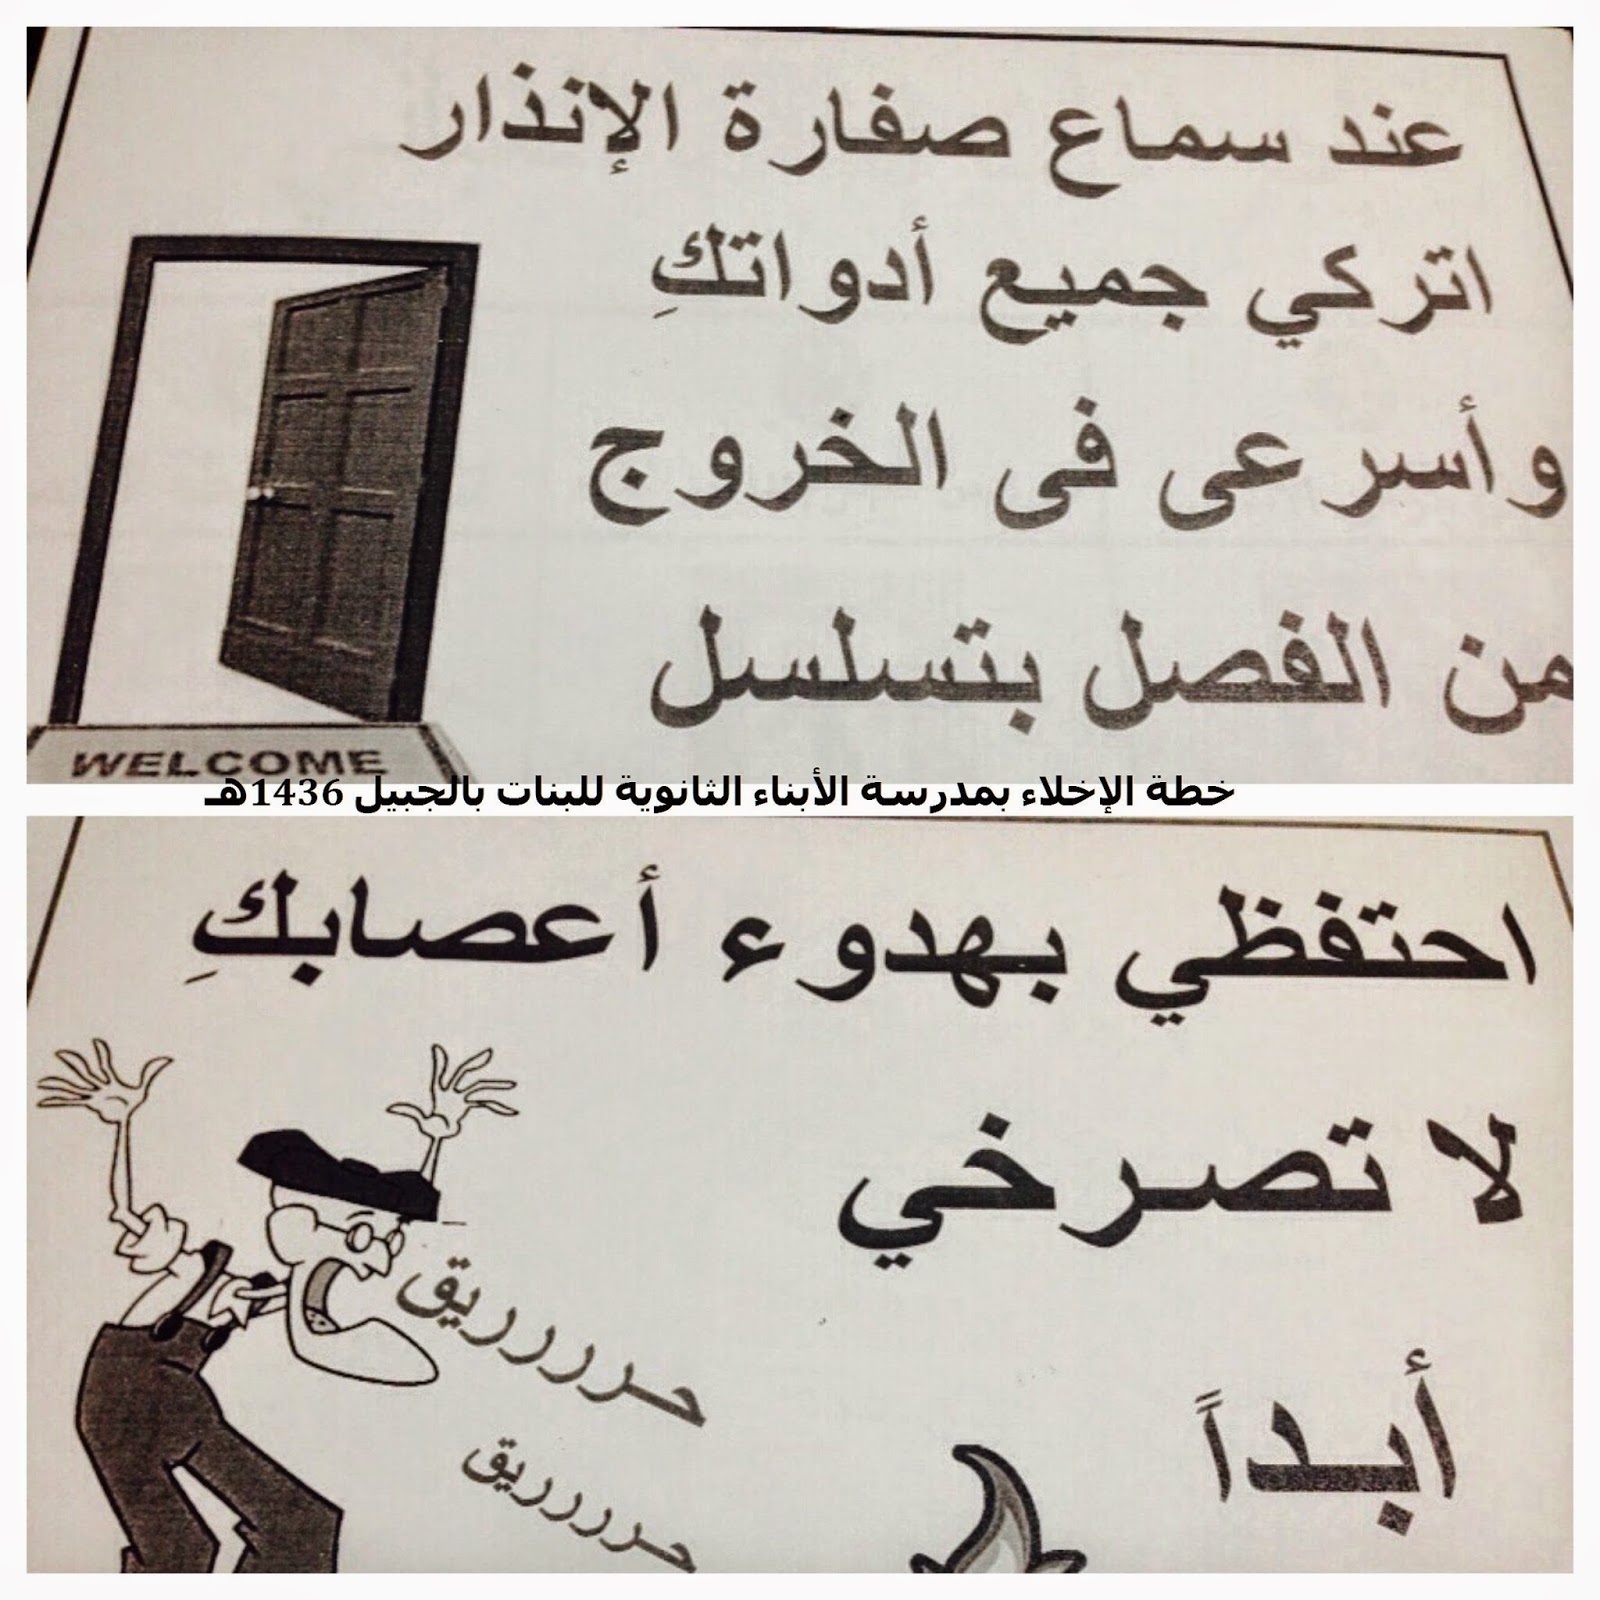 عند سماع صفارة الإنذار
اتركي جميع أدواتكِ
وأسرعى فى الخروج
من الفصل بتسلسل
WELCOME
خطة الإخلاء بمدرسة الأبناء الثانوية للبنات بالجبيل 1436هـ
احتفظي بهدوء أعصابكِ
لا تصرخي
حـرررررريق
أبـداً
حـررررريق